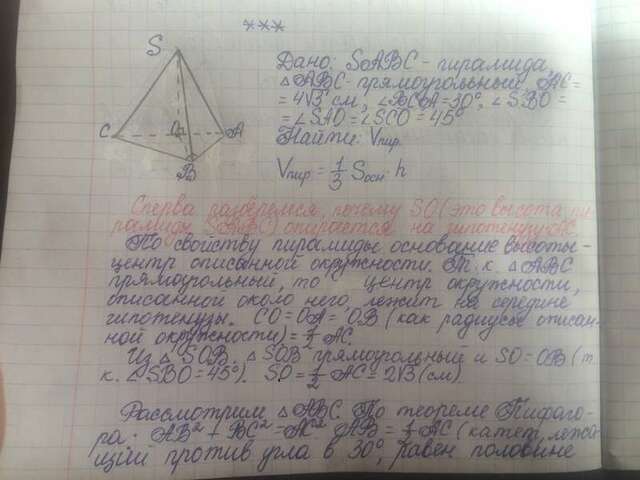 ***
S
C
O
A
B
Дано: SABC - пирамида,
△ABC - прямоугольный, AC =
= 4√3 см, ∠BCA = 30°, ∠SBO =
= ∠SAO = ∠SCO = 45°
Найти: Vпир
Vпир = 1/3 Sосн · h
Сперва разберемся, почему SO (это высота пи-
рамиды SABC) опирается на гипотенузу AC
По свойству пирамиды основание высоты -
центр описанной окружности. Т. к. △ABC
прямоугольный, то центр окружности,
описанной около него, лежит на середине
гипотенузы. CO = OA = OB (как радиусы описан-
ной окружности) = 1/2 AC.
Из △SOB. △SOB прямоугольный и SO = OB (т.
к. ∠SBO = 45°). SO = 1/2 AC = 2√3 (см).
Рассмотрим △ABC. По теореме Пифаго-
ра: AB² + BC² = AC². AB = 1/2 AC (катет, лежа-
щий против угла в 30°, равен половине